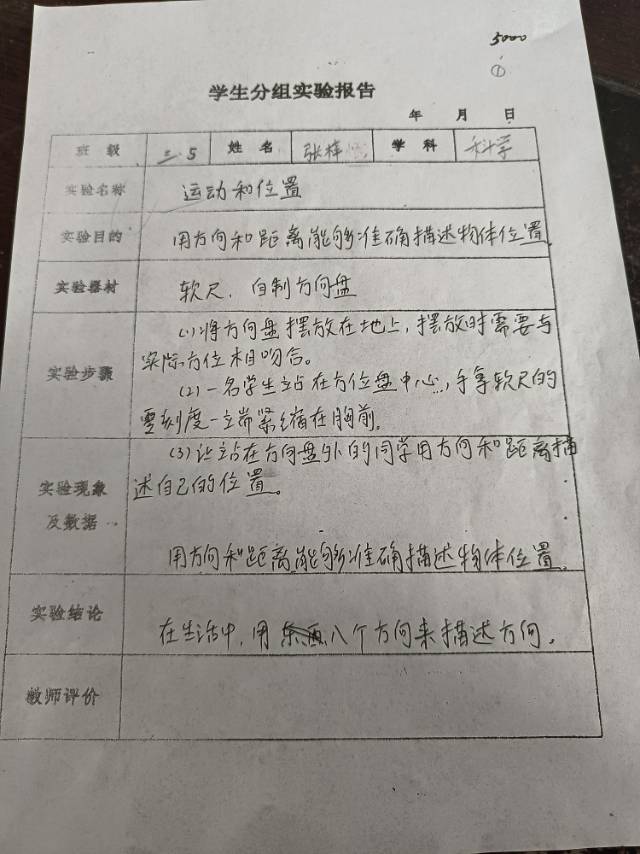 5000
①
学生分组实验报告
年 月 日
班 级 三5 姓 名 张梓 学 科 科学
实验名称 运动和位置
实验目的 用方向和距离能够准确描述物体位置.
实验器材 软尺、自制方向盘
(1)将方向盘摆放在地上,摆放时需要与
实验步骤 实际方位相吻合。
(2)一名学生站在方位盘中心,手拿软尺的
零刻度一端紧缩在胸前.
(3)让站在方向盘外的同学用方向和距离描
实验现象 述自己的位置。
及数据
用方向和距离能够准确描述物体位置.
实验结论
在生活中,用八个方向来描述方向.
教师评价